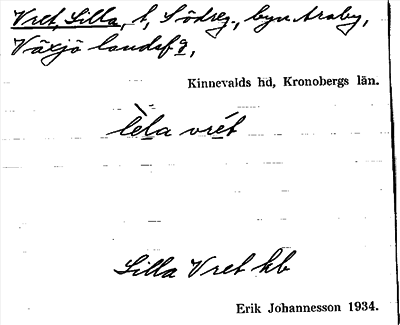 Vret, Lilla, t, Södreg., byn Araby,
Växjö landsf g,
Kinnevalds hd, Kronobergs län.
lè̱la vré̱t
Lilla Vret kb
Erik Johannesson 1934.